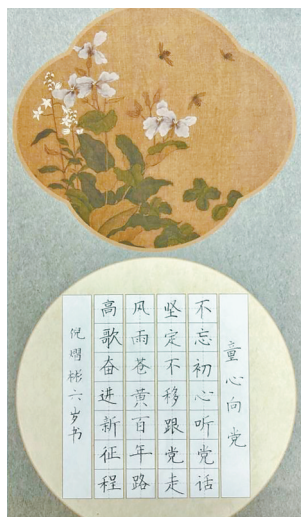 童心向党
不忘初心听党话
坚定不移跟党走
风雨苍黄百年路
高歌奋进新征程
倪明彬六岁书